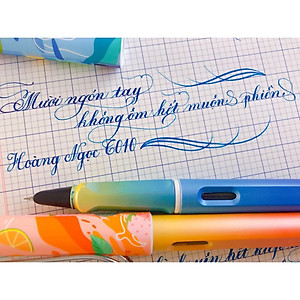 Mười ngón tay
không ôm hết muộn phiền.
Hoàng Ngọc 6010